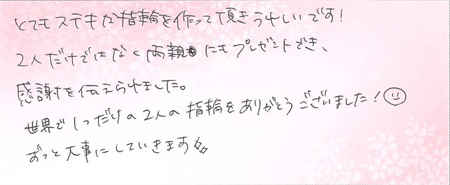 とてもステキな指輪を作って頂きうれしいです!
2人だけではなく両親にもプレゼントでき、
感謝を伝えられました。
世界で1つだけの2人の指輪をありがとうございました!
ずっと大事にしていきます